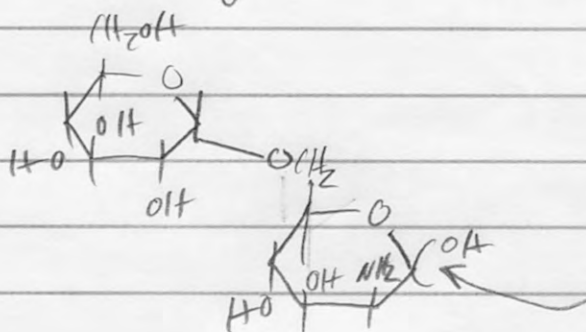 CH2OH
O
OH
HO
OH
OCH2
O
OH
OH NH2
HO